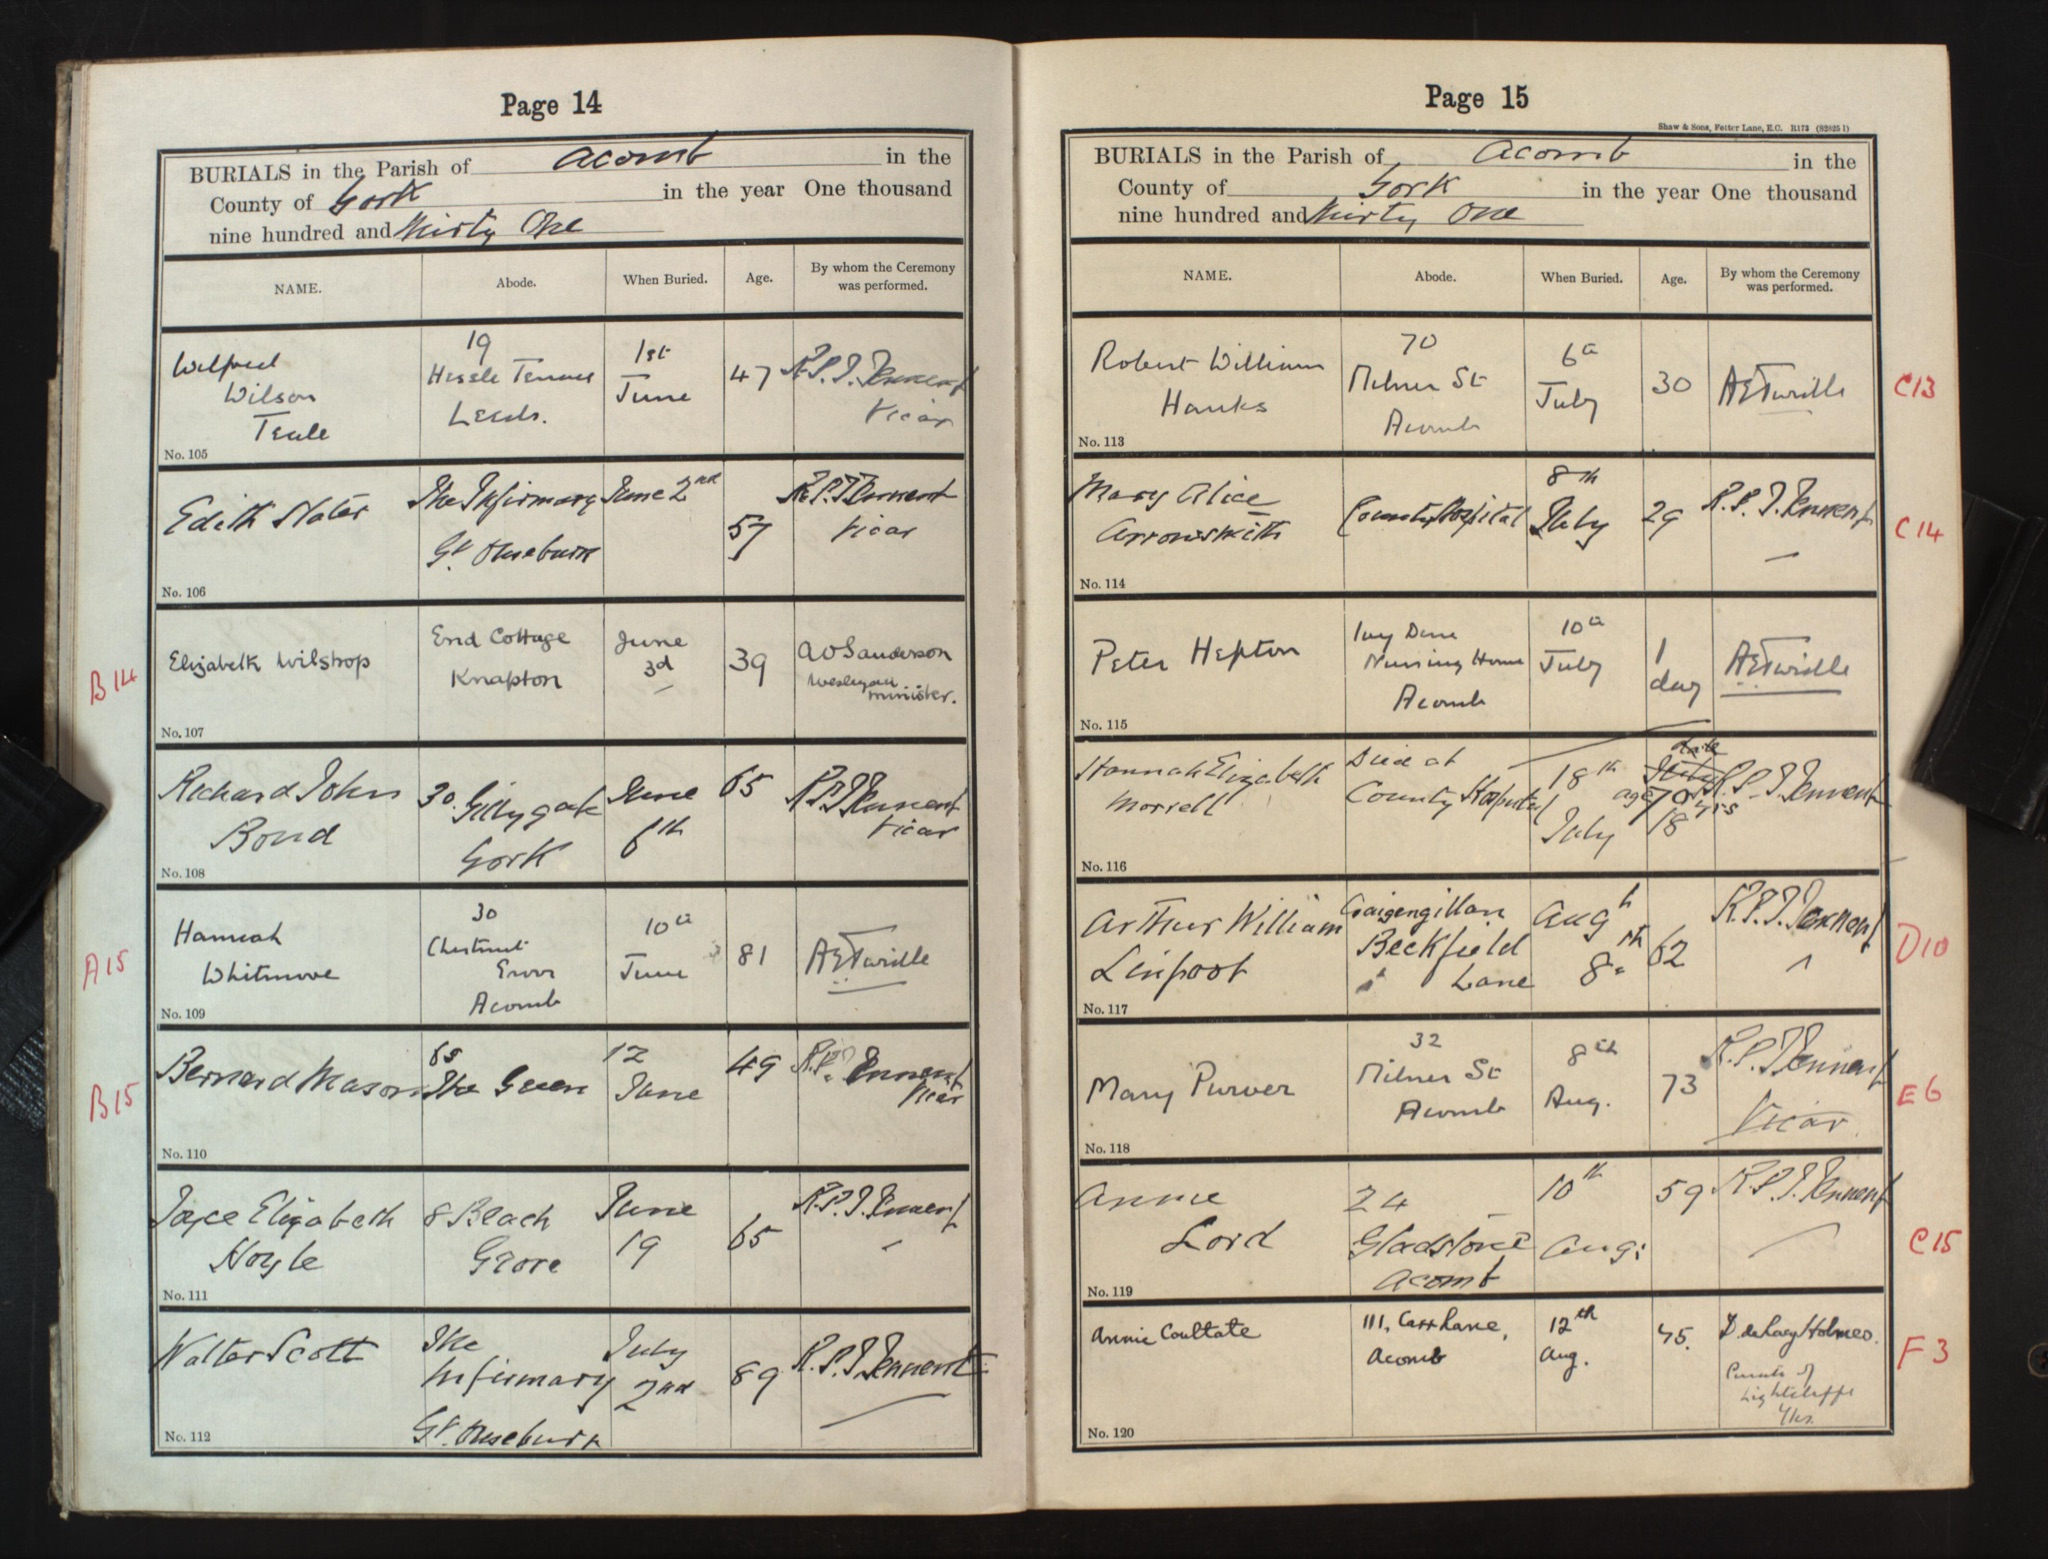 Page 14
BURIALS in the Parish of Acomb in the
County of York in the year One thousand
nine hundred and Thirty One
NAME. Abode. When Buried. Age. By whom the Ceremony was performed.
Wilfred Wilson Teale
19 Hessle Terrace Leeds.
1st June
47
R.P.T. Tennent Vicar
No. 105
Edith Slater
The Infirmary Gt. Ouseburn
June 2nd
57
R.P.T. Tennent Vicar
No. 106
B14
Elizabeth Wilstrop
End Cottage Knapton
June 3d
39
A O Sanderson Wesleyan minister.
No. 107
Richard John Bond
30. Gillygate York
June 6th
65
R.P.T. Tennent Vicar
No. 108
A15
Hannah Whitmore
30 Chestnut Grove Acomb
10th June
81
A E Turville
No. 109
B15
Bernard Mason
65 The Green
12 June
49
R.P.T. Tennent Vicar
No. 110
Elizabeth Hoyle
8 Beach Grove
June 19
65
R.P.T. Tennent
No. 111
Walter Scott
The Infirmary Gt. Ouseburn
July 2nd
89
R.P.T. Tennent
No. 112
Page 15
Shaw & Sons, Fetter Lane, E.C. R173 (82025 1)
BURIALS in the Parish of Acomb in the
County of York in the year One thousand
nine hundred and Thirty One
NAME. Abode. When Buried. Age. By whom the Ceremony was performed.
Robert William Hanks
70 Milner St Acomb
6th July
30
A E Turville
C13
No. 113
Mary Alice Arrowsmith
County Hospital
8th July
29
R.P.T. Tennent
C14
No. 114
Peter Hepton
Ivy Dene Nursing Home Acomb
10th July
1 day
A E Turville
No. 115
Hannah Elizabeth Morrell
Died at County Hospital
18th July
age 70 yrs
18
R.P.T. Tennent
No. 116
Arthur William Linfoot
Craigengillan Beckfield Lane
Aug 8th
62
R.P.T. Tennent
D10
No. 117
Mary Purver
32 Milner St Acomb
8th Aug.
73
R.P.T. Tennent Vicar
E6
No. 118
Annie Lord
24 Gladstone Acomb
10th Aug:
59
R.P.T. Tennent
C15
No. 119
Annie Coultate
111, Carr Lane, Acomb
12th Aug.
45.
D. de Lacy Holmes.
Curate of Lightcliffe Yks.
F3
No. 120